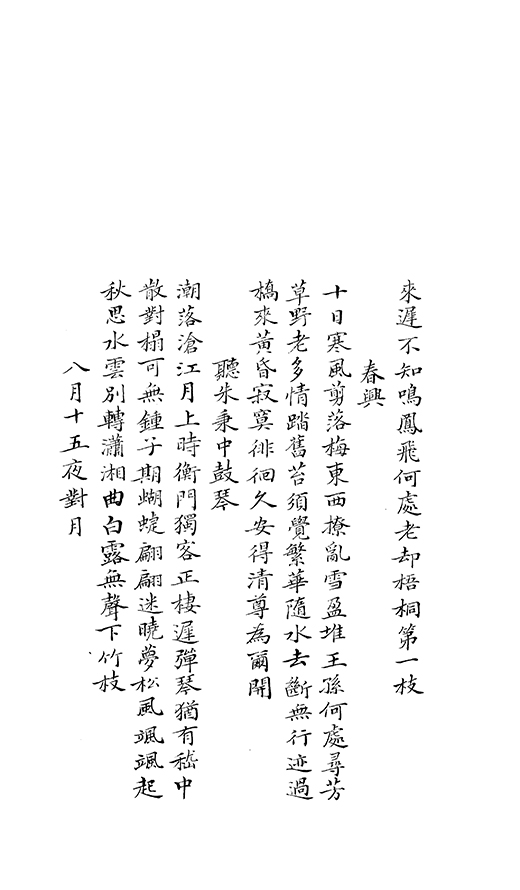 來遲不知鳴鳳飛何處老却梧桐第一枝
春興
十日寒風剪落梅東西撩亂雪盈堆王孫何處尋芳
草野老多情踏舊苔須覺繁華隨水去斷無行迹過
橋來黃昏寂寞徘徊久安得清尊為爾開
聽朱秉中鼓琴
潮落滄江月上時衡門獨客正棲遲彈琴猶有嵇中
散對榻可無鍾子期蝴蜨翩翩迷曉夢松風颯颯起
秋思水雲別轉瀟湘曲白露無聲下竹枝
八月十五夜對月